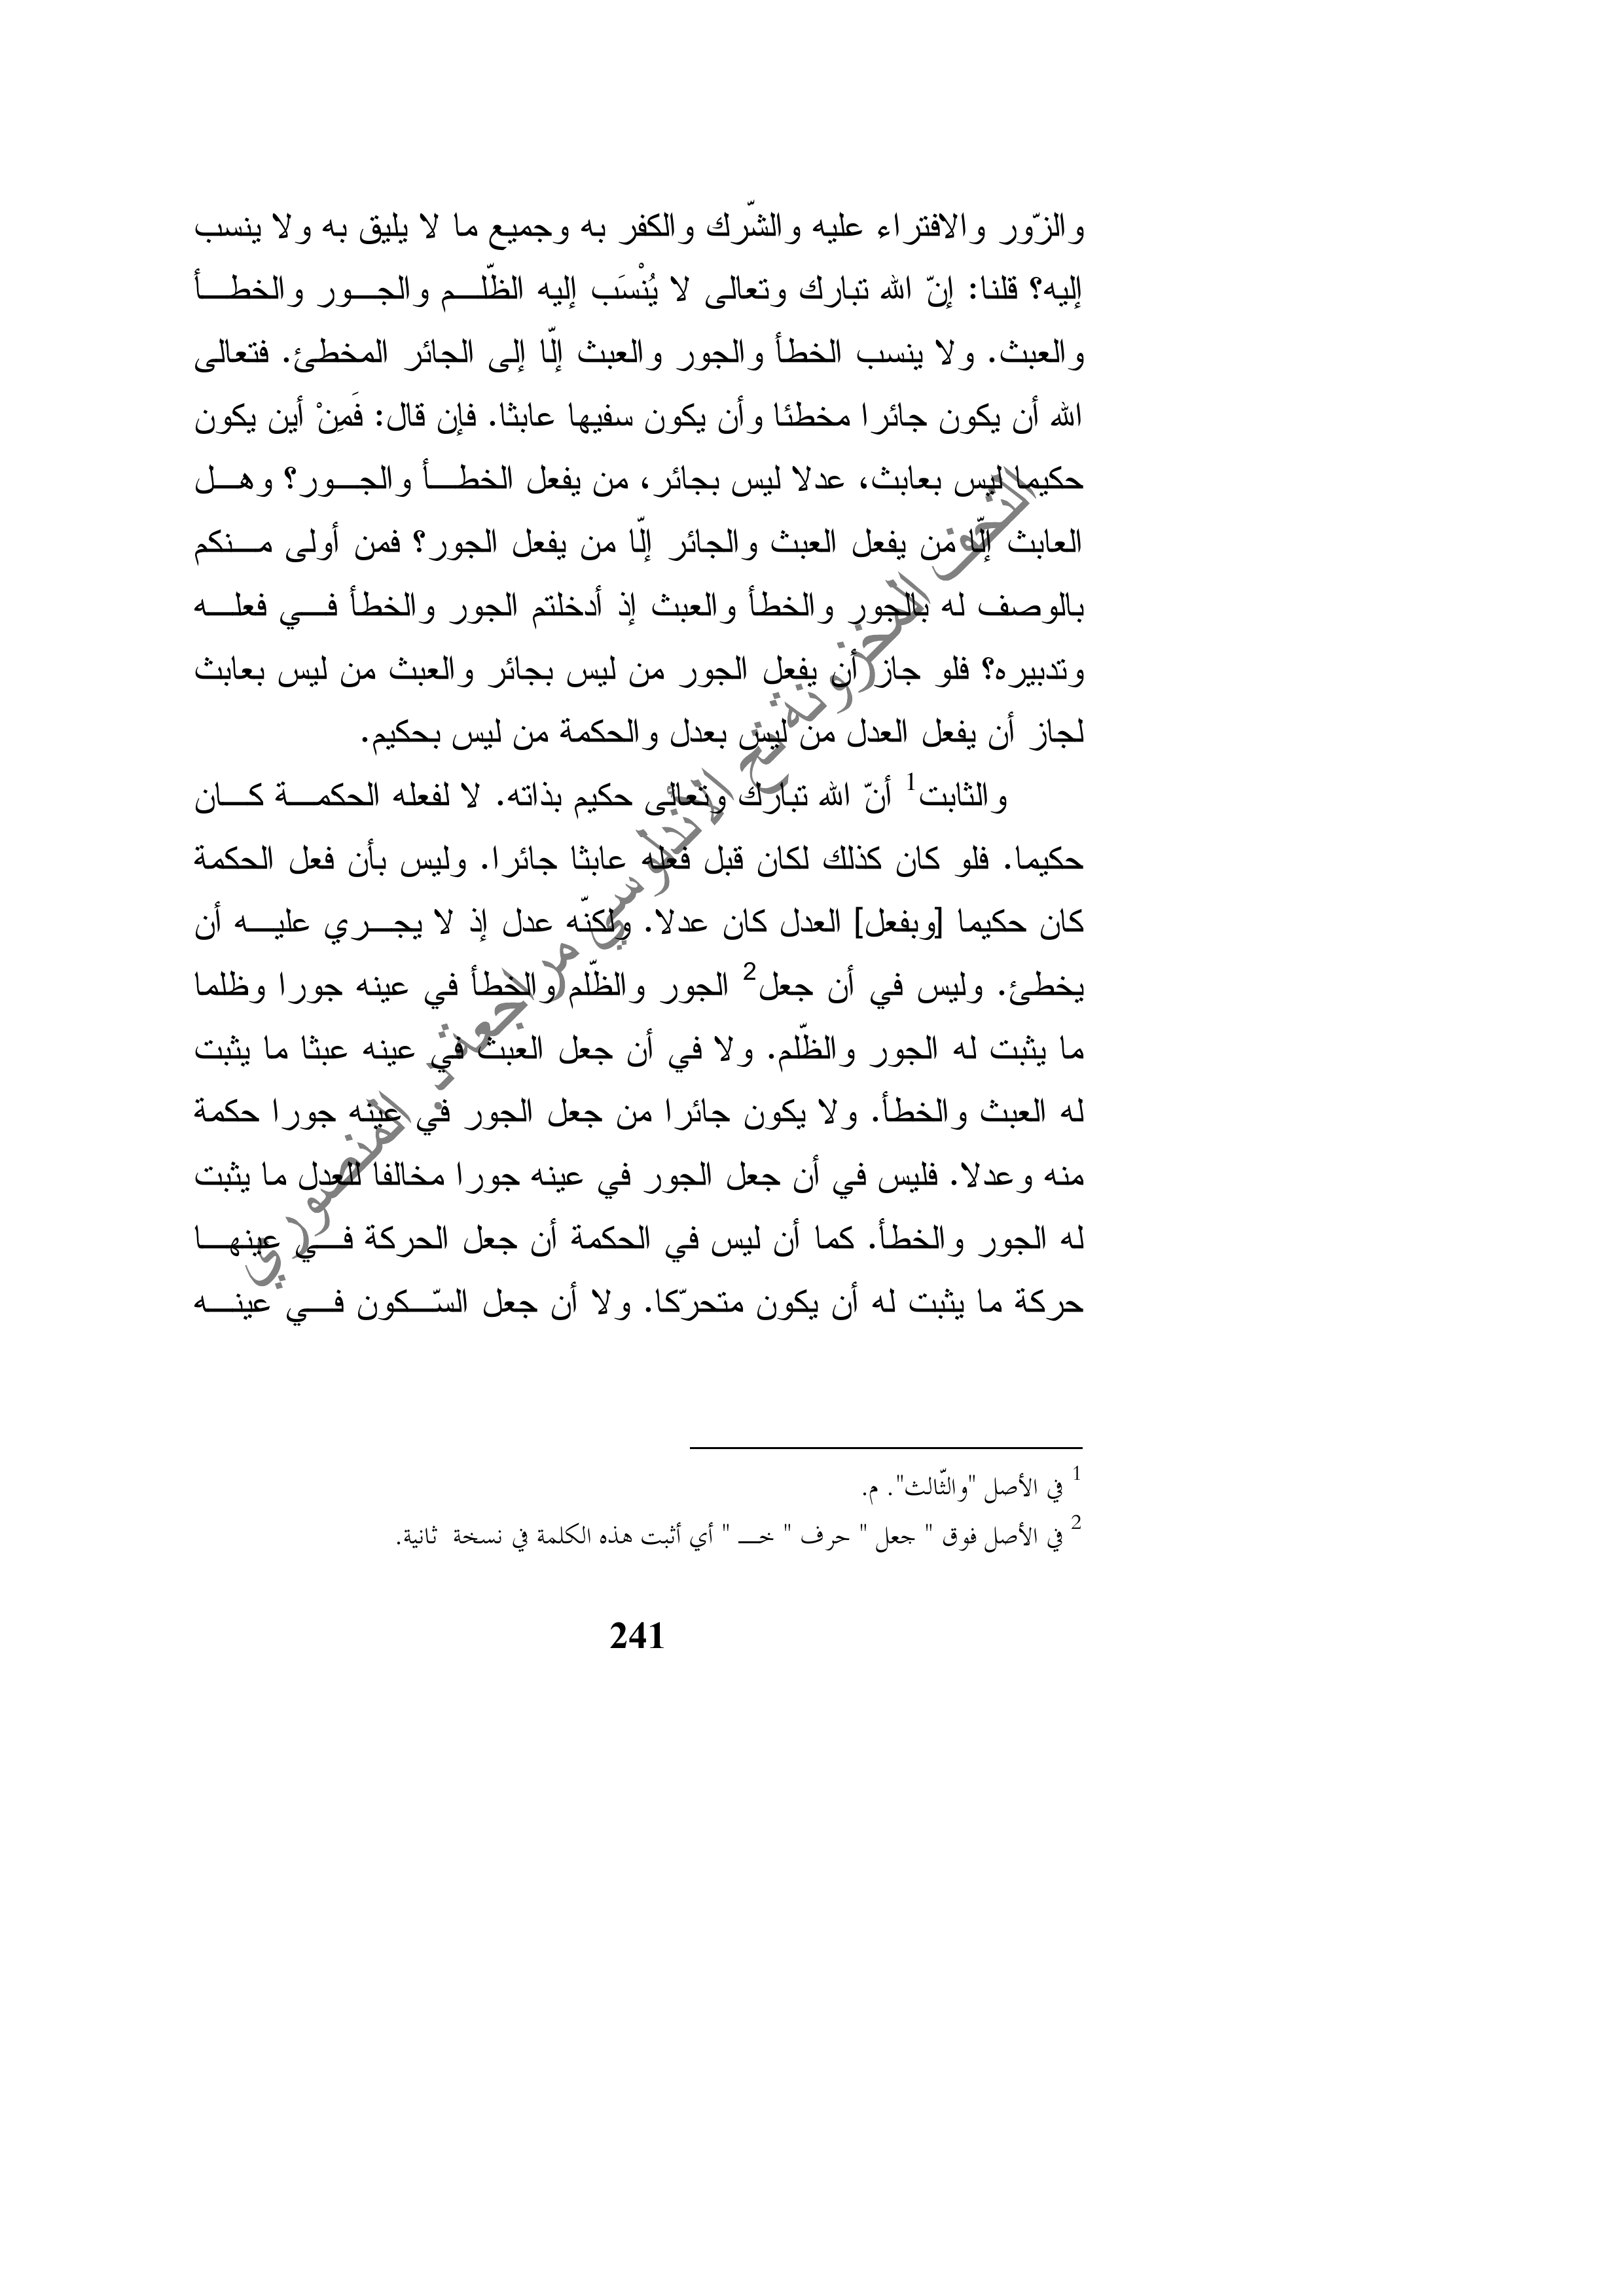 والزّور والافتراء عليه والشّرك والكفر به وجميع ما لا يليق به ولا ينسب
إليه؟ قلنا: إنّ الله تبارك وتعالى لا يُنْسَب إليه الظّلم والجور والخطأ
والعبث. ولا ينسب الخطأ والجور والعبث إلّا إلى الجائر المخطئ. فتعالى
الله أن يكون جائرا مخطئا وأن يكون سفيها عابثا. فإن قال: فَمِنْ أين يكون
حكيما ليس بعابث، عدلا ليس بجائر، من يفعل الخطأ والجور؟ وهل
العابث إلّا من يفعل العبث والجائر إلّا من يفعل الجور؟ فمن أولى منكم
بالوصف له بالجور والخطأ والعبث إذ أدخلتم الجور والخطأ في فعله
وتدبيره؟ فلو جاز أن يفعل الجور من ليس بجائر والعبث من ليس بعابث
لجاز أن يفعل العدل من ليس بعدل والحكمة من ليس بحكيم.
والثابت1 أنّ الله تبارك وتعالى حكيم بذاته. لا لفعله الحكمة كان
حكيما. فلو كان كذلك لكان قبل فعله عابثا جائرا. وليس بأن فعل الحكمة
كان حكيما [وبفعل] العدل كان عدلا. ولكنّه عدل إذ لا يجري عليه أن
يخطئ. وليس في أن جعل2 الجور والظّلم والخطأ في عينه جورا وظلما
ما يثبت له الجور والظّلم. ولا في أن جعل العبث في عينه عبثا ما يثبت
له العبث والخطأ. ولا يكون جائرا من جعل الجور في عينه جورا حكمة
منه وعدلا. فليس في أن جعل الجور في عينه جورا مخالفا للعدل ما يثبت
له الجور والخطأ. كما أن ليس في الحكمة أن جعل الحركة في عينها
حركة ما يثبت له أن يكون متحرّكا. ولا أن جعل السّكون في عينه
1 في الأصل "والثّالث". م.
2 في الأصل فوق " جعل " حرف " خـ " أي أثبت هذه الكلمة في نسخة ثانية.
241
التحف المخزونة تح الأندلوسي مراجعة د. المنصوري